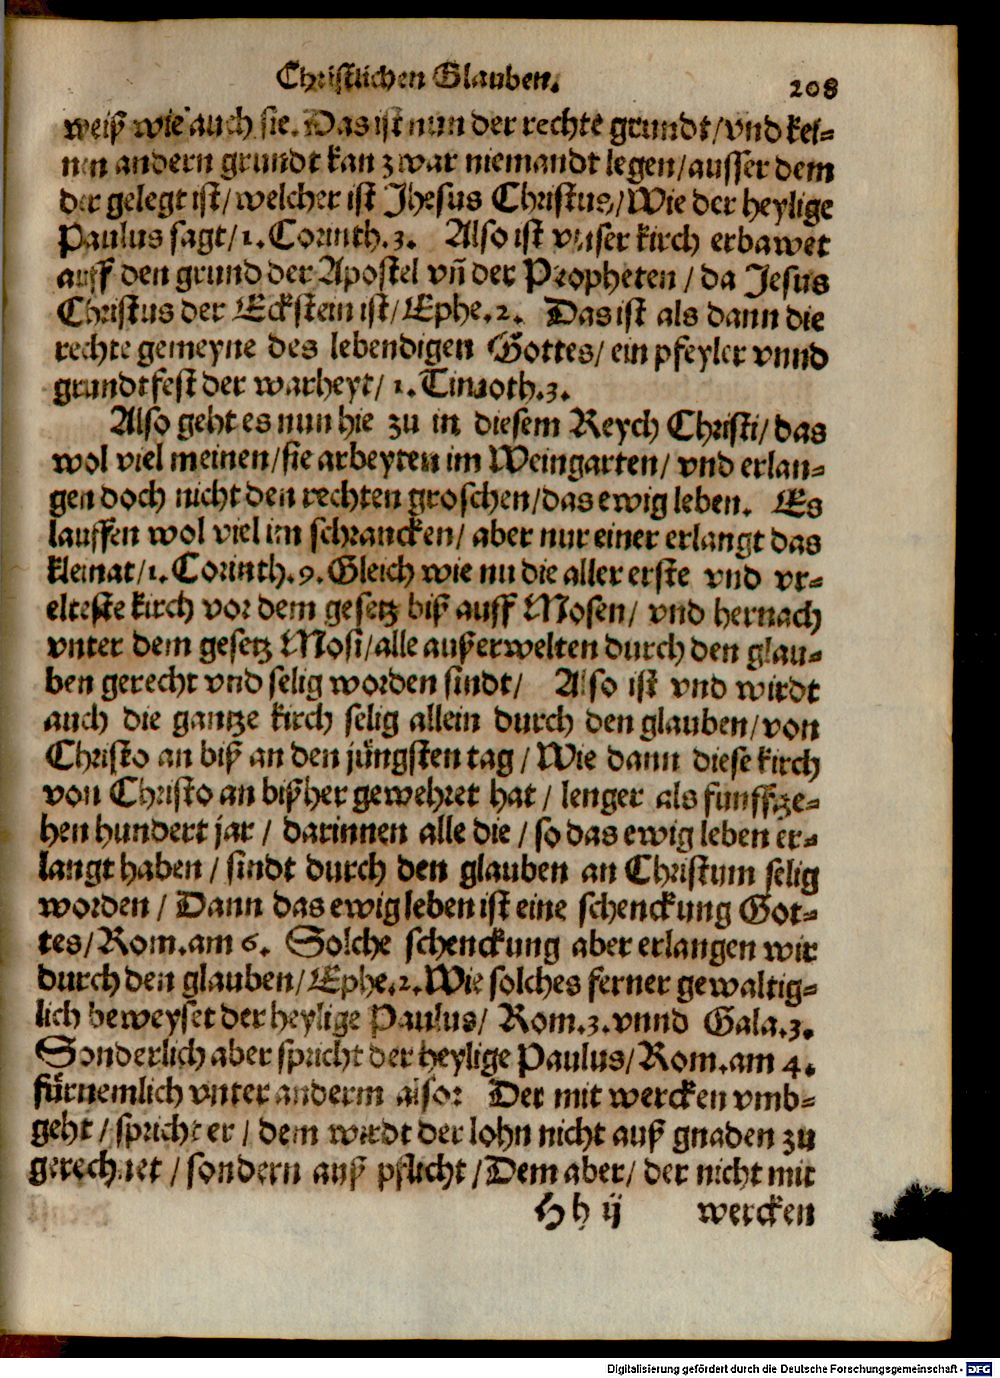 Christlichen Glauben.
208
weiß wie auch sie. Das ist nun der rechte grundt/vnd kei-
nen andern grundt kan zwar niemandt legen/ausser dem
der gelegt ist/welcher ist Jhesus Christus/Wie der heylige
Paulus sagt/1. Corinth. 3. Also ist vnser kirch erbawet
auff den grund der Apostel vñ der Propheten/da Jesus
Christus der Eckstein ist/Ephe. 2. Das ist als dann die
rechte gemeyne des lebendigen Gottes/ein pfeyler vnnd
grundtfest der warheyt/1. Timoth. 3.
Also geht es nun hie zu in diesem Reych Christi/das
wol viel meinen/sie arbeyten im Weingarten/vnd erlan-
gen doch nicht den rechten groschen/das ewig leben. Es
lauffen wol viel im schrancken/aber nur einer erlangt das
kleinat/1. Corinth. 9. Gleich wie nu die aller erste vnd vr-
elteste kirch vor dem gesetz biß auff Mosen/vnd hernach
vnter dem gesetz Mosi/alle außerwelten durch den glau-
ben gerecht vnd selig worden sindt/ Also ist vnd wirdt
auch die gantze kirch selig allein durch den glauben/von
Christo an biß an den jüngsten tag/Wie dann diese kirch
von Christo an bißher gewehret hat/lenger als funffze-
hen hundert jar/darinnen alle die/so das ewig leben er-
langt haben/sindt durch den glauben an Christum selig
worden/Dann das ewig leben ist eine schenckung Got-
tes/Rom. am 6. Solche schenckung aber erlangen wir
durch den glauben/Ephe. 2. Wie solches ferner gewaltig-
lich beweyset der heylige Paulus/Rom. 3. vnnd Gala. 3.
Sonderlich aber spricht der heylige Paulus/Rom. am 4.
fürnemlich vnter anderm also: Der mit wercken vmb-
geht/spricht er/dem wirdt der lohn nicht auß gnaden zu
gerechnet/sondern auß pflicht/Dem aber/der nicht mit
Hh ij wercken
Digitalisierung gefördert durch die Deutsche Forschungsgemeinschaft - DFG